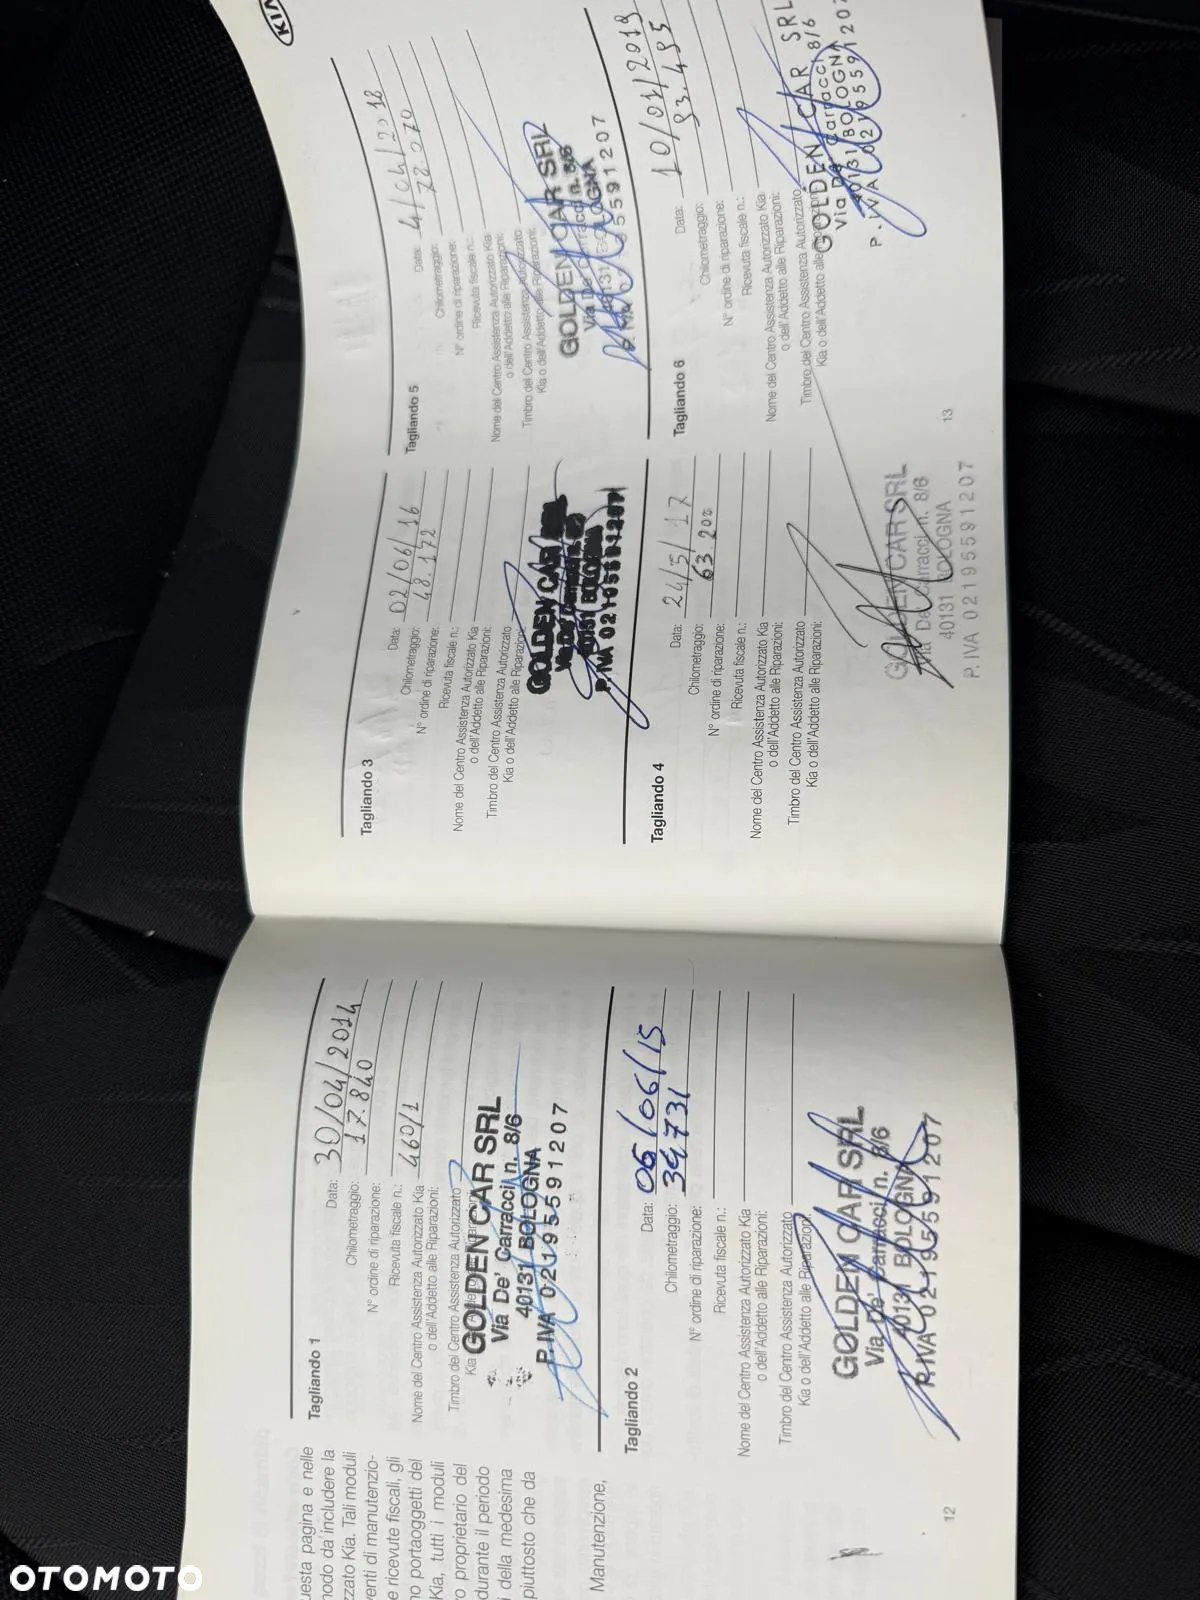 uesta pagina e nelle
modo da includere la
zzato Kia. Tali moduli
venti di manutenzio-
e ricevute fiscali, gli
no portaoggetti del
Kia, tutti i moduli
o proprietario del
durante il periodo
i della medesima
piuttosto che da
Manutenzione,
Tagliando 1
Data: 30/04/2014
Chilometraggio: 17.840
N° ordine di riparazione:
Ricevuta fiscale n.: 460/1
Nome del Centro Assistenza Autorizzato Kia
o dell'Addetto alle Riparazioni:
Timbro del Centro Assistenza Autorizzato
Kia
GOLDEN CAR SRL
Via De' Carracci n. 8/6
40131 BOLOGNA
P.IVA 02195591207
Tagliando 2
Data: 06/06/15
Chilometraggio: 39731
N° ordine di riparazione:
Ricevuta fiscale n.:
Nome del Centro Assistenza Autorizzato Kia
o dell'Addetto alle Riparazioni:
Timbro del Centro Assistenza Autorizzato
Kia o dell'Addetto alle Riparazioni:
GOLDEN CAR SRL
Via De' Carracci n. 8/6
40131 BOLOGNA
P.IVA 02195591207
12
Tagliando 3
Data: 02/06/16
Chilometraggio: 48.172
N° ordine di riparazione:
Ricevuta fiscale n.:
Nome del Centro Assistenza Autorizzato Kia
o dell'Addetto alle Riparazioni:
Timbro del Centro Assistenza Autorizzato
Kia o dell'Addetto alle Riparazioni:
GOLDEN CAR SRL
40131 BOLOGNA
P.IVA 02195591207
Tagliando 4
Data: 24/5/17
Chilometraggio: 63.200
N° ordine di riparazione:
Ricevuta fiscale n.:
Nome del Centro Assistenza Autorizzato Kia
o dell'Addetto alle Riparazioni:
Timbro del Centro Assistenza Autorizzato
Kia o dell'Addetto alle Riparazioni:
GOLDEN CAR SRL
Via De' Carracci n. 8/6
40131 BOLOGNA
P.IVA 02195591207
KIA
Tagliando 5
Data: 4/04/2018
Chilometraggio: 78.070
N° ordine di riparazione:
Ricevuta fiscale n.:
Nome del Centro Assistenza Autorizzato Kia
o dell'Addetto alle Riparazioni:
Timbro del Centro Assistenza Autorizzato
Kia o dell'Addetto alle Riparazioni:
GOLDEN CAR SRL
Via De' Carracci n. 8/6
40131 BOLOGNA
5591207
Tagliando 6
Data: 10/01/2019
Chilometraggio: 93.495
N° ordine di riparazione:
Ricevuta fiscale n.:
Nome del Centro Assistenza Autorizzato Kia
o dell'Addetto alle Riparazioni:
Timbro del Centro Assistenza Autorizzato
Kia o dell'Addetto alle Riparazioni:
GOLDEN CAR SRL
Via De' Carracci 8/6
40131 BOLOGNA
P.IVA 02195591207
13
OTOMOTO